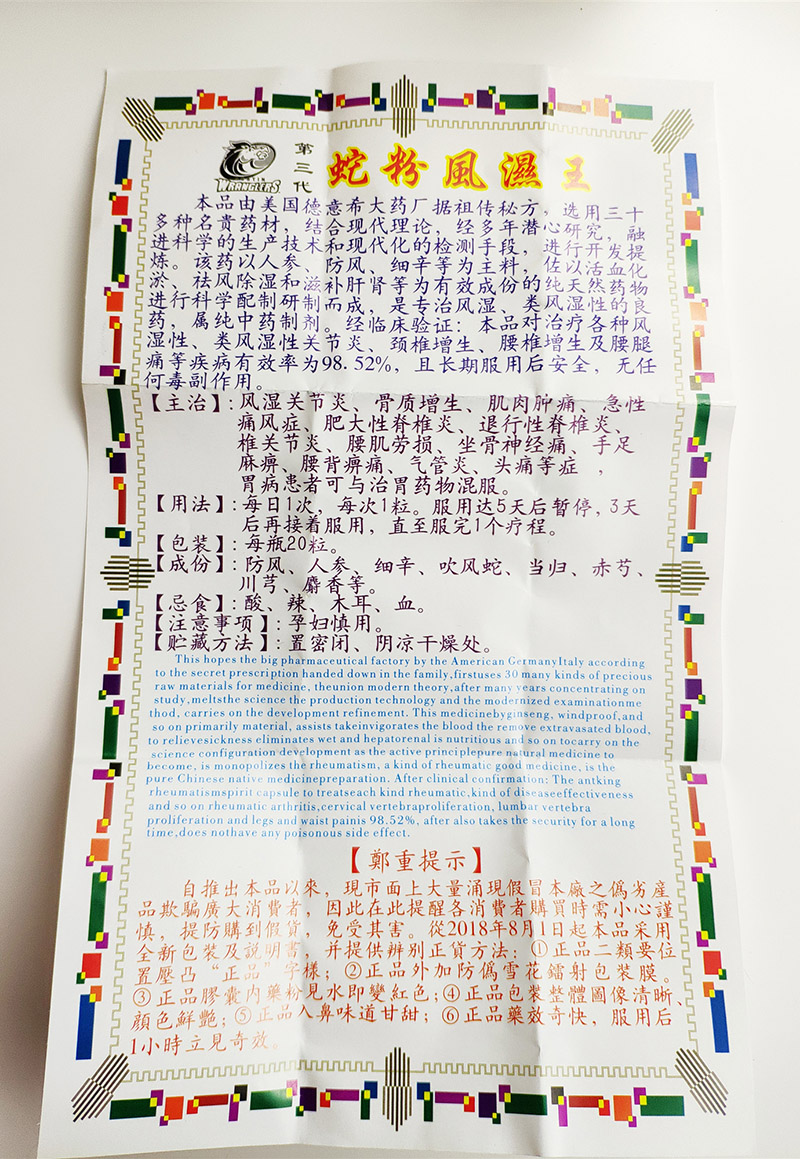 WRANGLERS
第三代
蛇粉風濕王
本品由美国德意希大药厂据祖传秘方，选用三十
多种名贵药材，结合现代理论，经多年潜心研究，融
进科学的生产技术和现代化的检测手段，进行开发提
炼。该药以人参、防风、细辛等为主料，佐以活血化
淤、祛风除湿和滋补肝肾等为有效成份的纯天然药物
进行科学配制研制而成，是专治风湿、类风湿性的良
药，属纯中药制剂。经临床验证：本品对治疗各种风
湿性、类风湿性关节炎、颈椎增生、腰椎增生及腰腿
痛等疾病有效率为98.52%，且长期服用后安全，无任
何毒副作用。
【主治】：风湿关节炎、骨质增生、肌肉肿痛、急性
痛风症、肥大性脊椎炎、退行性脊椎炎、
椎关节炎、腰肌劳损、坐骨神经痛、手足
麻痹、腰背痹痛、气管炎、头痛等症，
胃病患者可与治胃药物混服。
【用法】：每日1次，每次1粒。服用达5天后暂停，3天
后再接着服用，直至服完1个疗程。
【包装】：每瓶20粒。
【成份】：防风、人参、细辛、吹风蛇、当归、赤芍、
川芎、麝香等。
【忌食】：酸、辣、木耳、血。
【注意事项】：孕妇慎用。
【贮藏方法】：置密闭、阴凉干燥处。
This hopes the big pharmaceutical factory by the American GermanyItaly according
to the secret prescription handed down in the family,firstuses 30 many kinds of precious
raw materials for medicine, theunion modern theory,after many years concentrating on
study,meltsthe science the production technology and the modernized examinationme
thod, carries on the development refinement. This medicinebyginseng, windproof,and
so on primarily material, assists takeinvigorates the blood the remove extravasated blood,
to relievesickness eliminates wet and hepatorenal is nutritious and so on tocarry on the
science configuration development as the active principlepure natural medicine to
become, is monopolizes the rheumatism, a kind of rheumatic good medicine, is the
pure Chinese native medicinepreparation. After clinical confirmation: The antking
rheumatismspirit capsule to treatseach kind rheumatic,kind of diseaseeffectiveness
and so on rheumatic arthritis,cervical vertebraproliferation, lumbar vertebra
proliferation and legs and waist painis 98.52%, after also takes the security for a long
time,does nothave any poisonous side effect.
【鄭重提示】
自推出本品以來，現市面上大量涌現假冒本廠之僞劣産
品欺騙廣大消費者，因此在此提醒各消費者購買時需小心謹
慎，提防購到假貨，免受其害。從2018年8月1日起本品采用
全新包裝及説明書，并提供辨别正貨方法：①正品二類要位
置壓凸“正品”字樣；②正品外加防僞雪花鐳射包裝膜。
③正品膠囊内藥粉見水即變紅色；④正品包裝整體圖像清晰、
顔色鮮艷；⑤正品入鼻味道甘甜；⑥正品藥效奇快，服用后
1小時立見奇效。